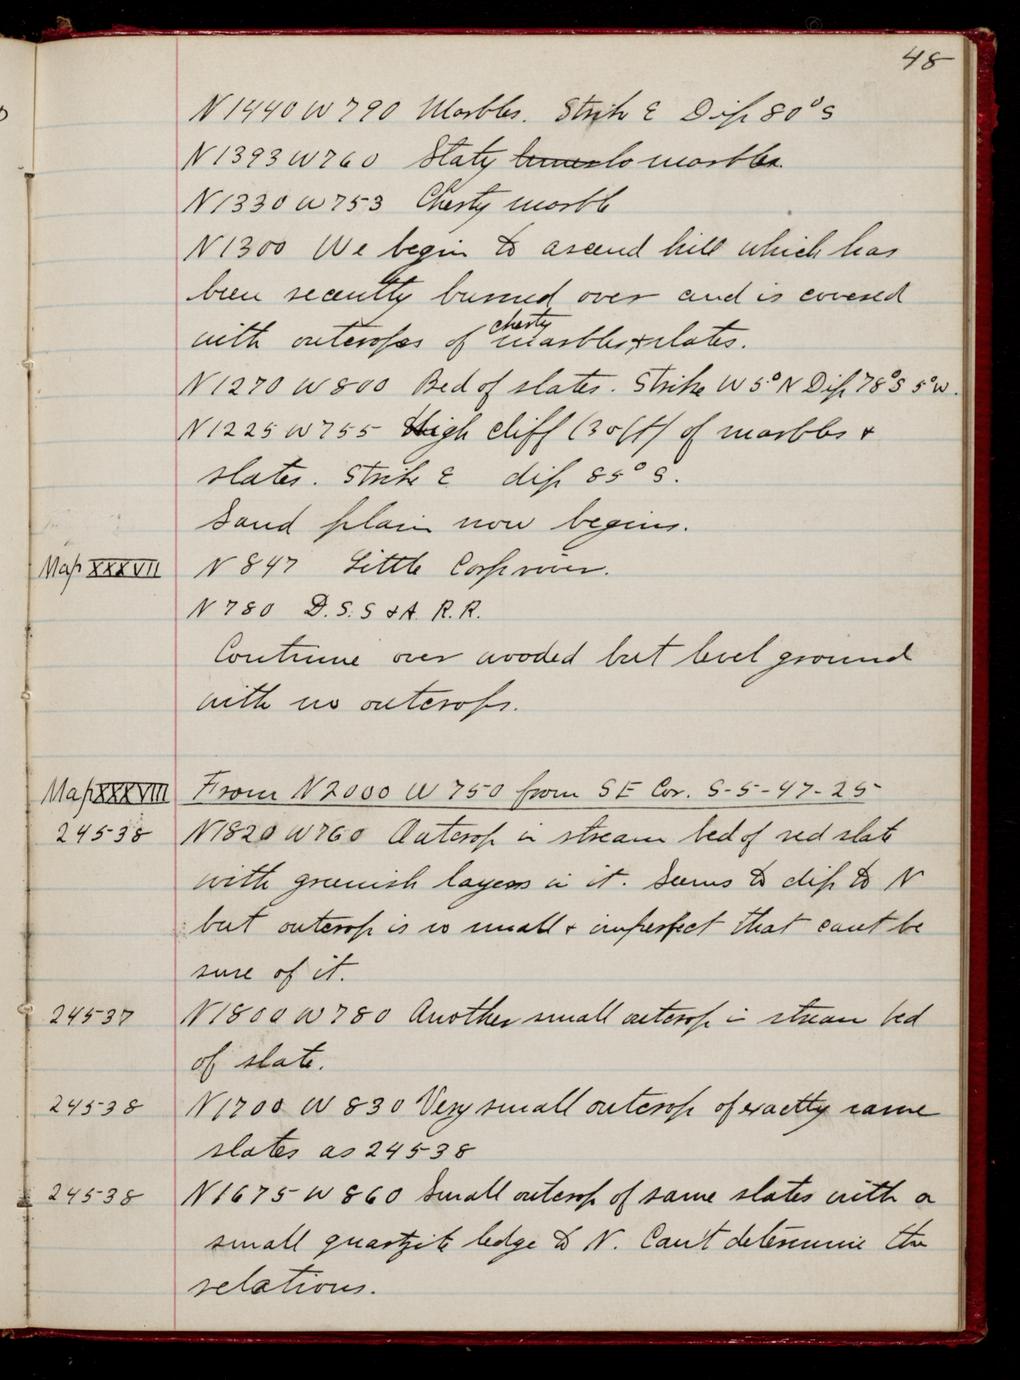 48
N1440 W790 Marbles. Strike E Dip 80°S
N1393 W760 Slaty marbles.
N1330 W753 Cherty marble
N1300 We begin to ascend hill which has
been recently burned over and is covered
with outcrops of cherty marbles & slates.
N1270 W800 Bed of slates. Strike W5°N Dip 78°S 5°W.
N1225 W755 High cliff (30ft) of marbles &
slates. Strike E dip 85° S.
Sand plain now begins.
Map XXXVII N847 Little Carp river.
N780 D.S.S & A. R.R.
Continue over wooded but level ground
with no outcrops.
Map XXXVIII From N2000 W750 from SE Cor. S-5-47-25
24538 N1820 W760 Outcrop in stream bed of red slate
with greenish layers in it. Seems to dip to N
but outcrop is so small & imperfect that cant be
sure of it.
24537 N1800 W780 Another small outcrop in stream bed
of slate.
24538 N1700 W830 Very small outcrop of exactly same
slates as 24538
24538 N1675 W860 Small outcrop of same slates with a
small quartzite ledge to N. Can't determine the
relations.